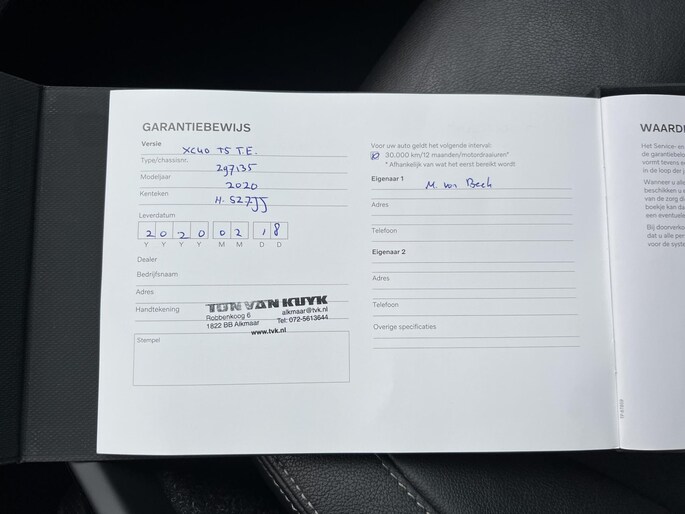 GARANTIEBEWIJS
Versie XC40 T5 T.E.
Type/chassisnr. 297135
Modeljaar 2020
Kenteken H-527-JJ
Leverdatum
2 0 2 0 0 2 1 8
Y Y Y Y M M D D
Dealer
Bedrijfsnaam
Adres
Handtekening
TON VAN KUYK
Robbenkoog 6 alkmaar@tvk.nl
1822 BB Alkmaar Tel: 072-5613644
www.tvk.nl
Stempel
Voor uw auto geldt het volgende interval:
30.000 km/12 maanden/motordraaiuren*
* Afhankelijk van wat het eerst bereikt wordt
Eigenaar 1 M. van Beek
Adres
Telefoon
Eigenaar 2
Adres
Telefoon
Overige specificaties
WAARDE
Het Service- en
de garantiebe
vormt tevens e
in de loop der j
Wanneer u alle
beschikken u e
van de zorg di
boekje kan da
een eventuele
Bij doorverko
dat u alle per
voor de syste